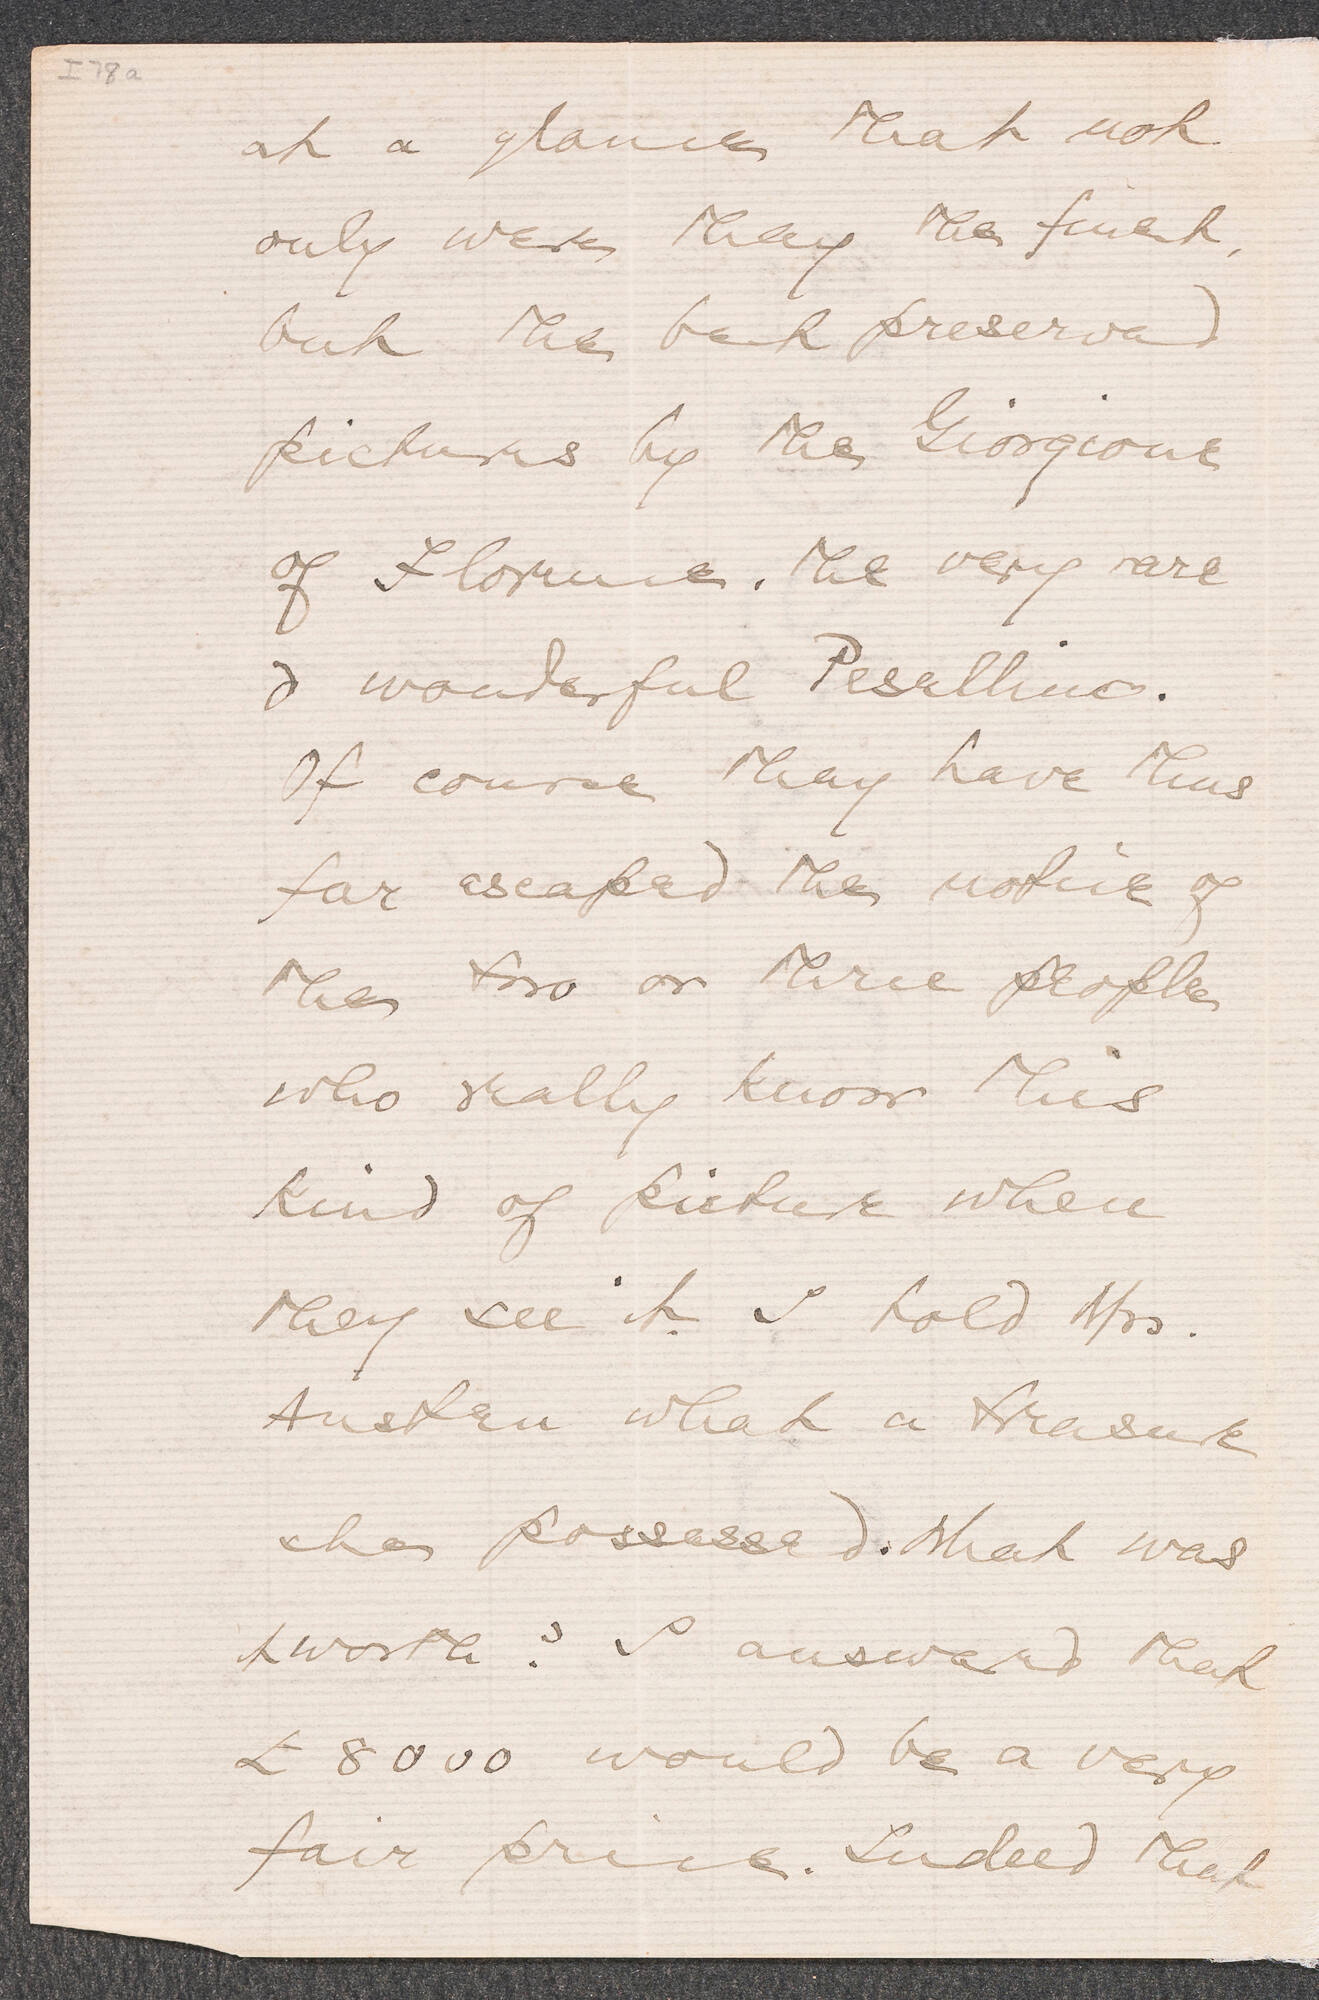 I 78a
at a glance that not
only were they the finest,
but the best preserved
pictures by the Giorgione
of Florence, the very rare
& wonderful Pesellino.
Of course they have thus
far escaped the notice of
the two or three people
who really know this
kind of picture when
they see it. I told Mrs.
Austen what a treasure
she possessed. What was
it worth? I answered that
£8000 would be a very
fair price. Indeed that